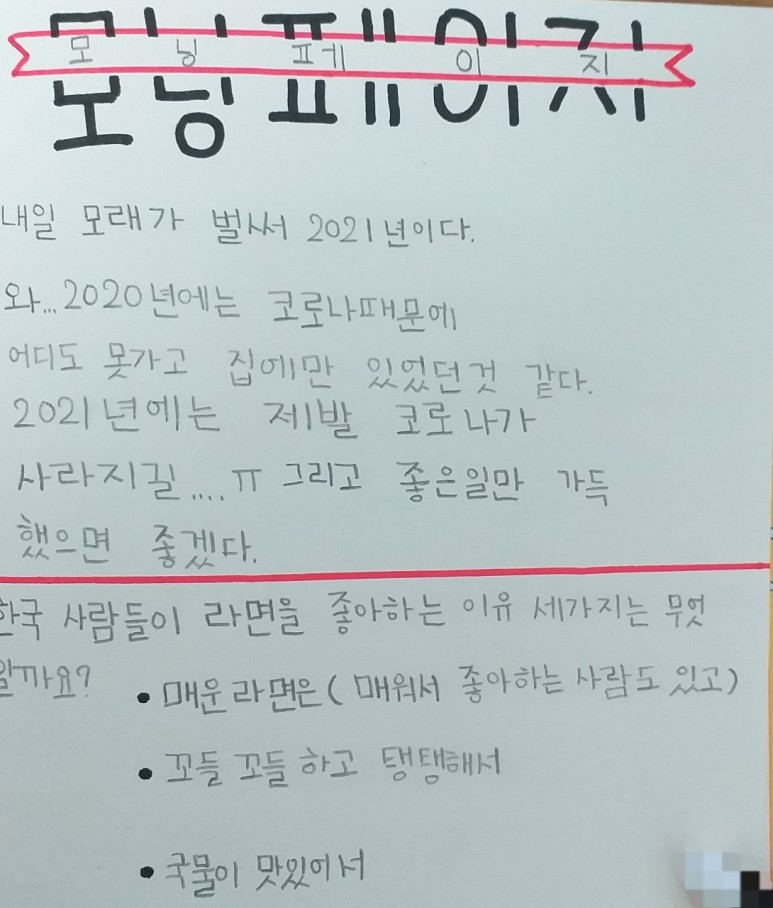 모닝페이지
모닝페이지
내일 모래가 벌써 2021년이다.
와...2020년에는 코로나때문에
어디도 못가고 집에만 있었던것 같다.
2021년에는 제발 코로나가
사라지길....ㅠ 그리고 좋은일만 가득
했으면 좋겠다.
한국 사람들이 라면을 좋아하는 이유 세가지는 무엇
일까요?
• 매운라면은( 매워서 좋아하는 사람도 있고)
• 꼬들 꼬들하고 탱탱해서
• 국물이 맛있어서